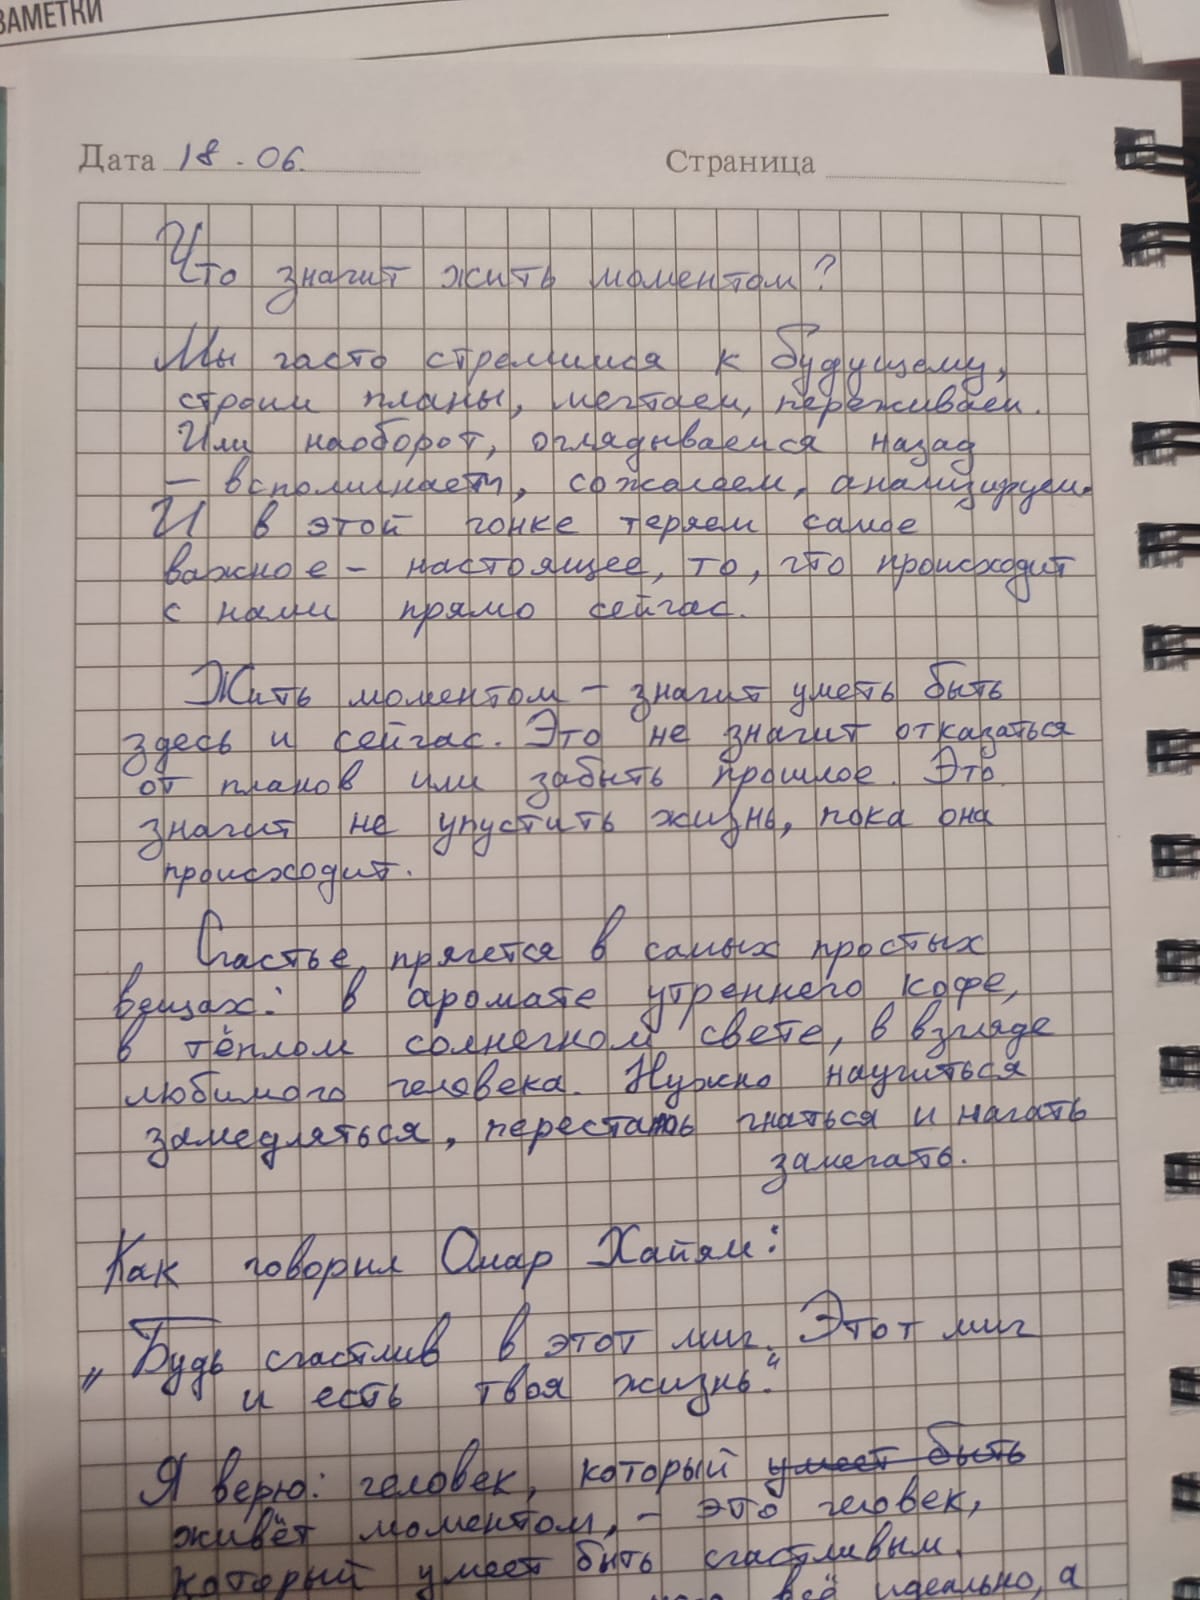 ЗАМЕТКИ
Дата 18.06.
Страница
Что значит жить моментом?
Мы часто стремимся к будущему,
строим планы, мечтаем, переживаем.
Или наоборот, оглядываемся назад
– вспоминаем, сожалеем, анализируем.
И в этой гонке теряем самое
важное – настоящее, то, что происходит
с нами прямо сейчас.
Жить моментом – значит уметь быть
здесь и сейчас. Это не значит отказаться
от планов или забыть прошлое. Это
значит не упустить жизнь, пока она
происходит.
Счастье прячется в самых простых
вещах: в аромате утреннего кофе,
в тёплом солнечном свете, в взгляде
любимого человека. Нужно научиться
замедляться, перестать гнаться и начать
замечать.
Как говорил Омар Хайям:
„Будь счастлив в этот миг. Этот миг
и есть твоя жизнь.“
Я верю: человек, который умеет быть
живёт моментом, – это человек,
который умеет быть счастливым.
всё идеально, а